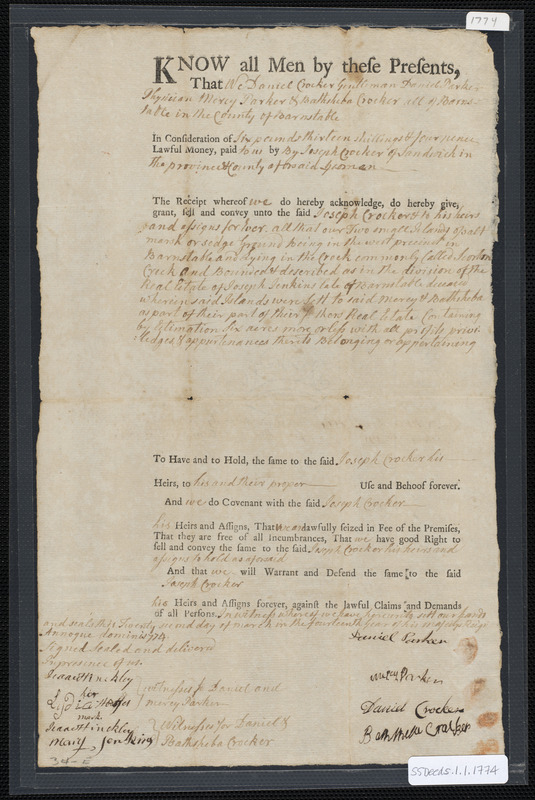 1774
KNOW all Men by these Presents,
That We Daniel Crocker Gentleman Daniel Parker
Physician Mercy Parker & Bathsheba Crocker all of Barns-
table in the County of Barnstable
In Consideration of Six pounds thirteen shillings & four pence
Lawful Money, paid by By Joseph Crocker of Sandwich in
the province & County aforesaid yeoman
The Receipt whereof we do hereby acknowledge, do hereby give,
grant, sell and convey unto the said Joseph Crocker & to his heirs
and assigns for Ever. all that our Two small Islands of salt
marsh or sedge ground Being in the west precinct in
Barnstable and lying in the Creek commonly Called Scorton
Creek and Bounded & described as in the division of the
Real Estate of Joseph Jenkins late of Barnstable
wherein said Islands were sett to said Mercy & Bathsheba
as part of their part of their Real Estate Containing
by Estimation six acres more or less with all profits privi-
ledges & appurtenances thereto Belonging or appertaining
To Have and to Hold, the same to the said Joseph Crocker his
Heirs, to his and their proper Use and Behoof forever.
And we do Covenant with the said Joseph Crocker
his Heirs and Assigns, That we are lawfully seized in Fee of the Premises,
That they are free of all Incumbrances, That we have good Right to
sell and convey the same to the said Joseph Crocker his heirs and
assigns to hold as aforesaid
And that we will Warrant and Defend the same to the said
Joseph Crocker
his Heirs and Assigns forever, against the lawful Claims and Demands
of all Persons. In witness whereof we have hereunto sett our hands
and seals this Twenty second day of march in the fourteenth year of his majestys Reign
Annoque dominis 1774.
Daniel Parker
Signed Sealed and delivered
In presence of us.
Isaac Hinckley
Mercy Parker
her
witnesses to Daniel and
mercy Parker
mark
Daniel Crocker
Isaac Hinckley
Witnesses for Daniel &
Mary Jenkins
Bathsheba Crocker
Bathsheba Crocker
SSDeeds.1.1.1774